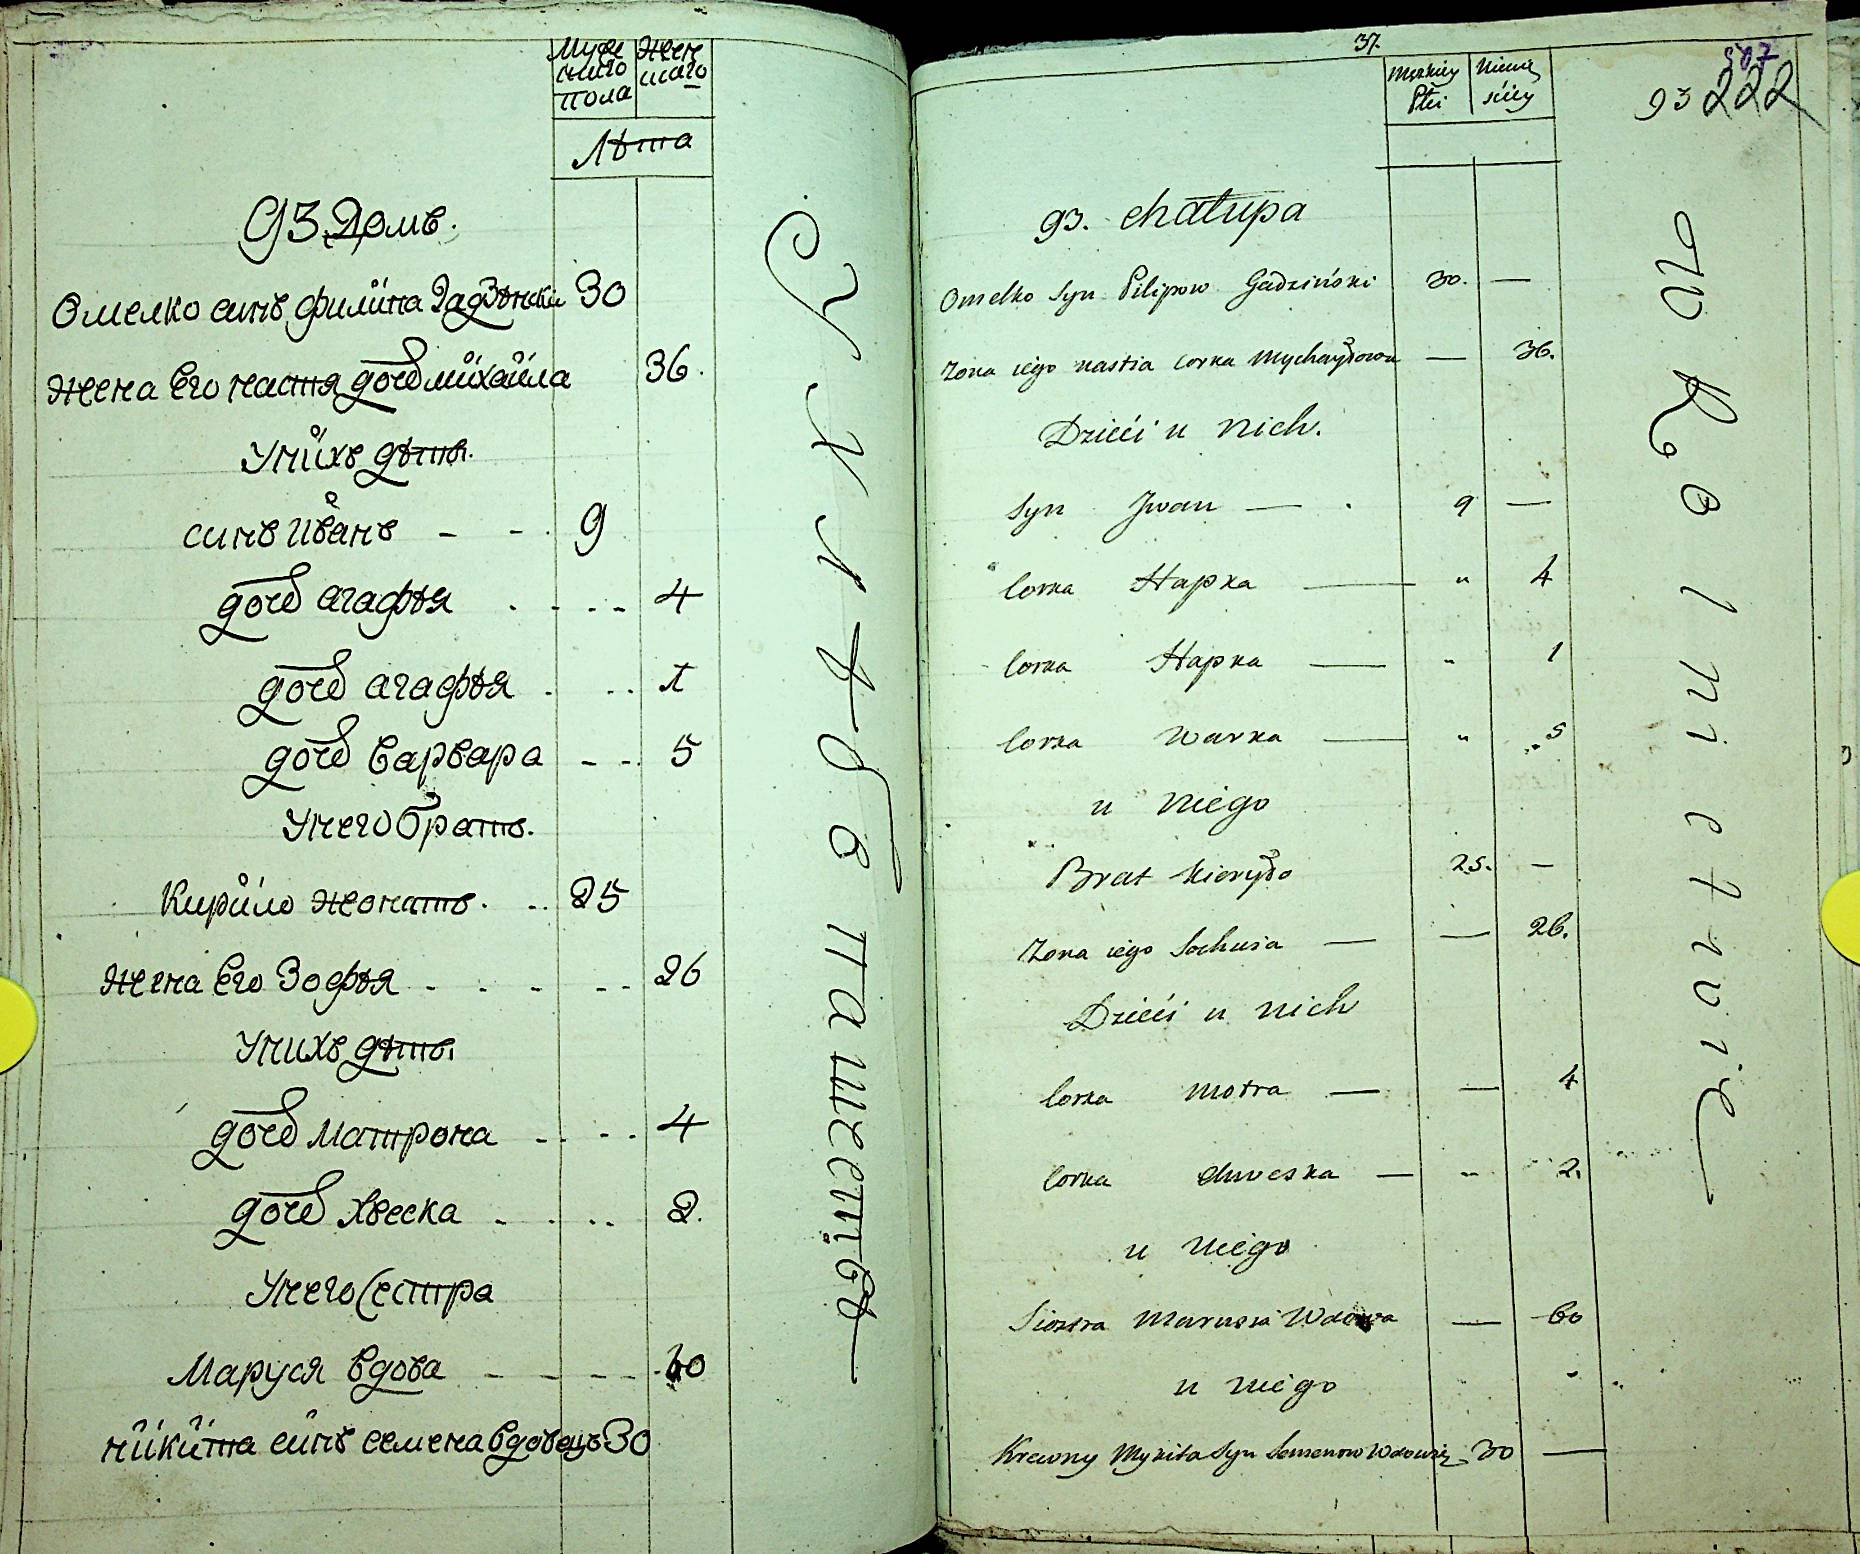 Муже
ского
пола
Жен
скаго
Лѣта
93 Домъ.
Омелко синъ филипа Гадзѣнски 30
жена Его настя дочь михаила 36.
Унихъ дѣти.
синъ Иванъ - - 9
дочь агафья . . - - 4
дочь агафья . . . 1
дочь варвара - - . 5
Унего братъ.
Кирило жонатъ. . . 25
жена Его Зофья . . . - - 26
Унихъ дѣти.
дочь Матрона - . . . 4
дочь Хвеска . . . . 2.
Унего Сестра
Маруся вдова - - - - 60
никита синъ семена вдовецъ 30
37.
Męzkiey
Płci
507
93 222
93. chałupa
Omelko Syn Pilipow Gadziński 30. —
Zona iego nastia Corka Mychayłowa — 36.
Dzieći u nich.
Syn Jwan — . 9 —
Corka Hapka — " 4
Corka Hapka — " 1
Corka Warka — " 5
u niego
Brat Kieryło 25. —
Zona iego Sochwia — — 26.
Dzieći u nich
Corka Motra — — 4
Corka chweska — " 2.
u niego
Siostra Marusia Wdowa — 60
u niego
Krewny Mykita Syn Semenow Wdowiec 30 —
w Rolnictwie